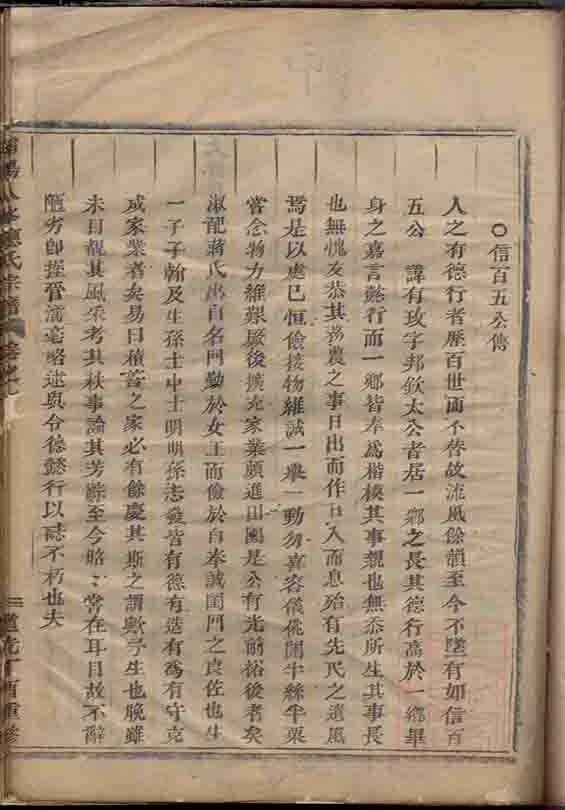 信百五公傳
人之有德行者歷百世而不替故流風餘韻至今不墜有如信百
五公 諱有玫字邦欽太公者居一鄉之長其德行高於一鄉畢
身之嘉言懿行而一鄉皆奉為楷模其事親也無忝所生其事長
也無愧友恭其務農之事日出而作日入而息殆有先民之遺風
焉是以處已恒儉接物維誠一舉一動勿喜容儀佻闥半絲半粟
嘗念物力維艱厥後擴充家業頗進田園是公有光前裕後者矣
淑配蔣氏出自名門勤於女工而儉於自奉誠閨門之良佐也生
一子子翰及生孫士中士明明孫志發皆有德有造有為有守克
成家業者矣易曰積善之家必有餘慶其斯之謂歟予生也晚雖
未目覩其風采考其秩事論其芳辭至今昭々常在耳目故不辭
陋劣即握管濡毫略述與令德懿行以誌不朽也夫
陽八修應氏宗譜
道光丁酉重修